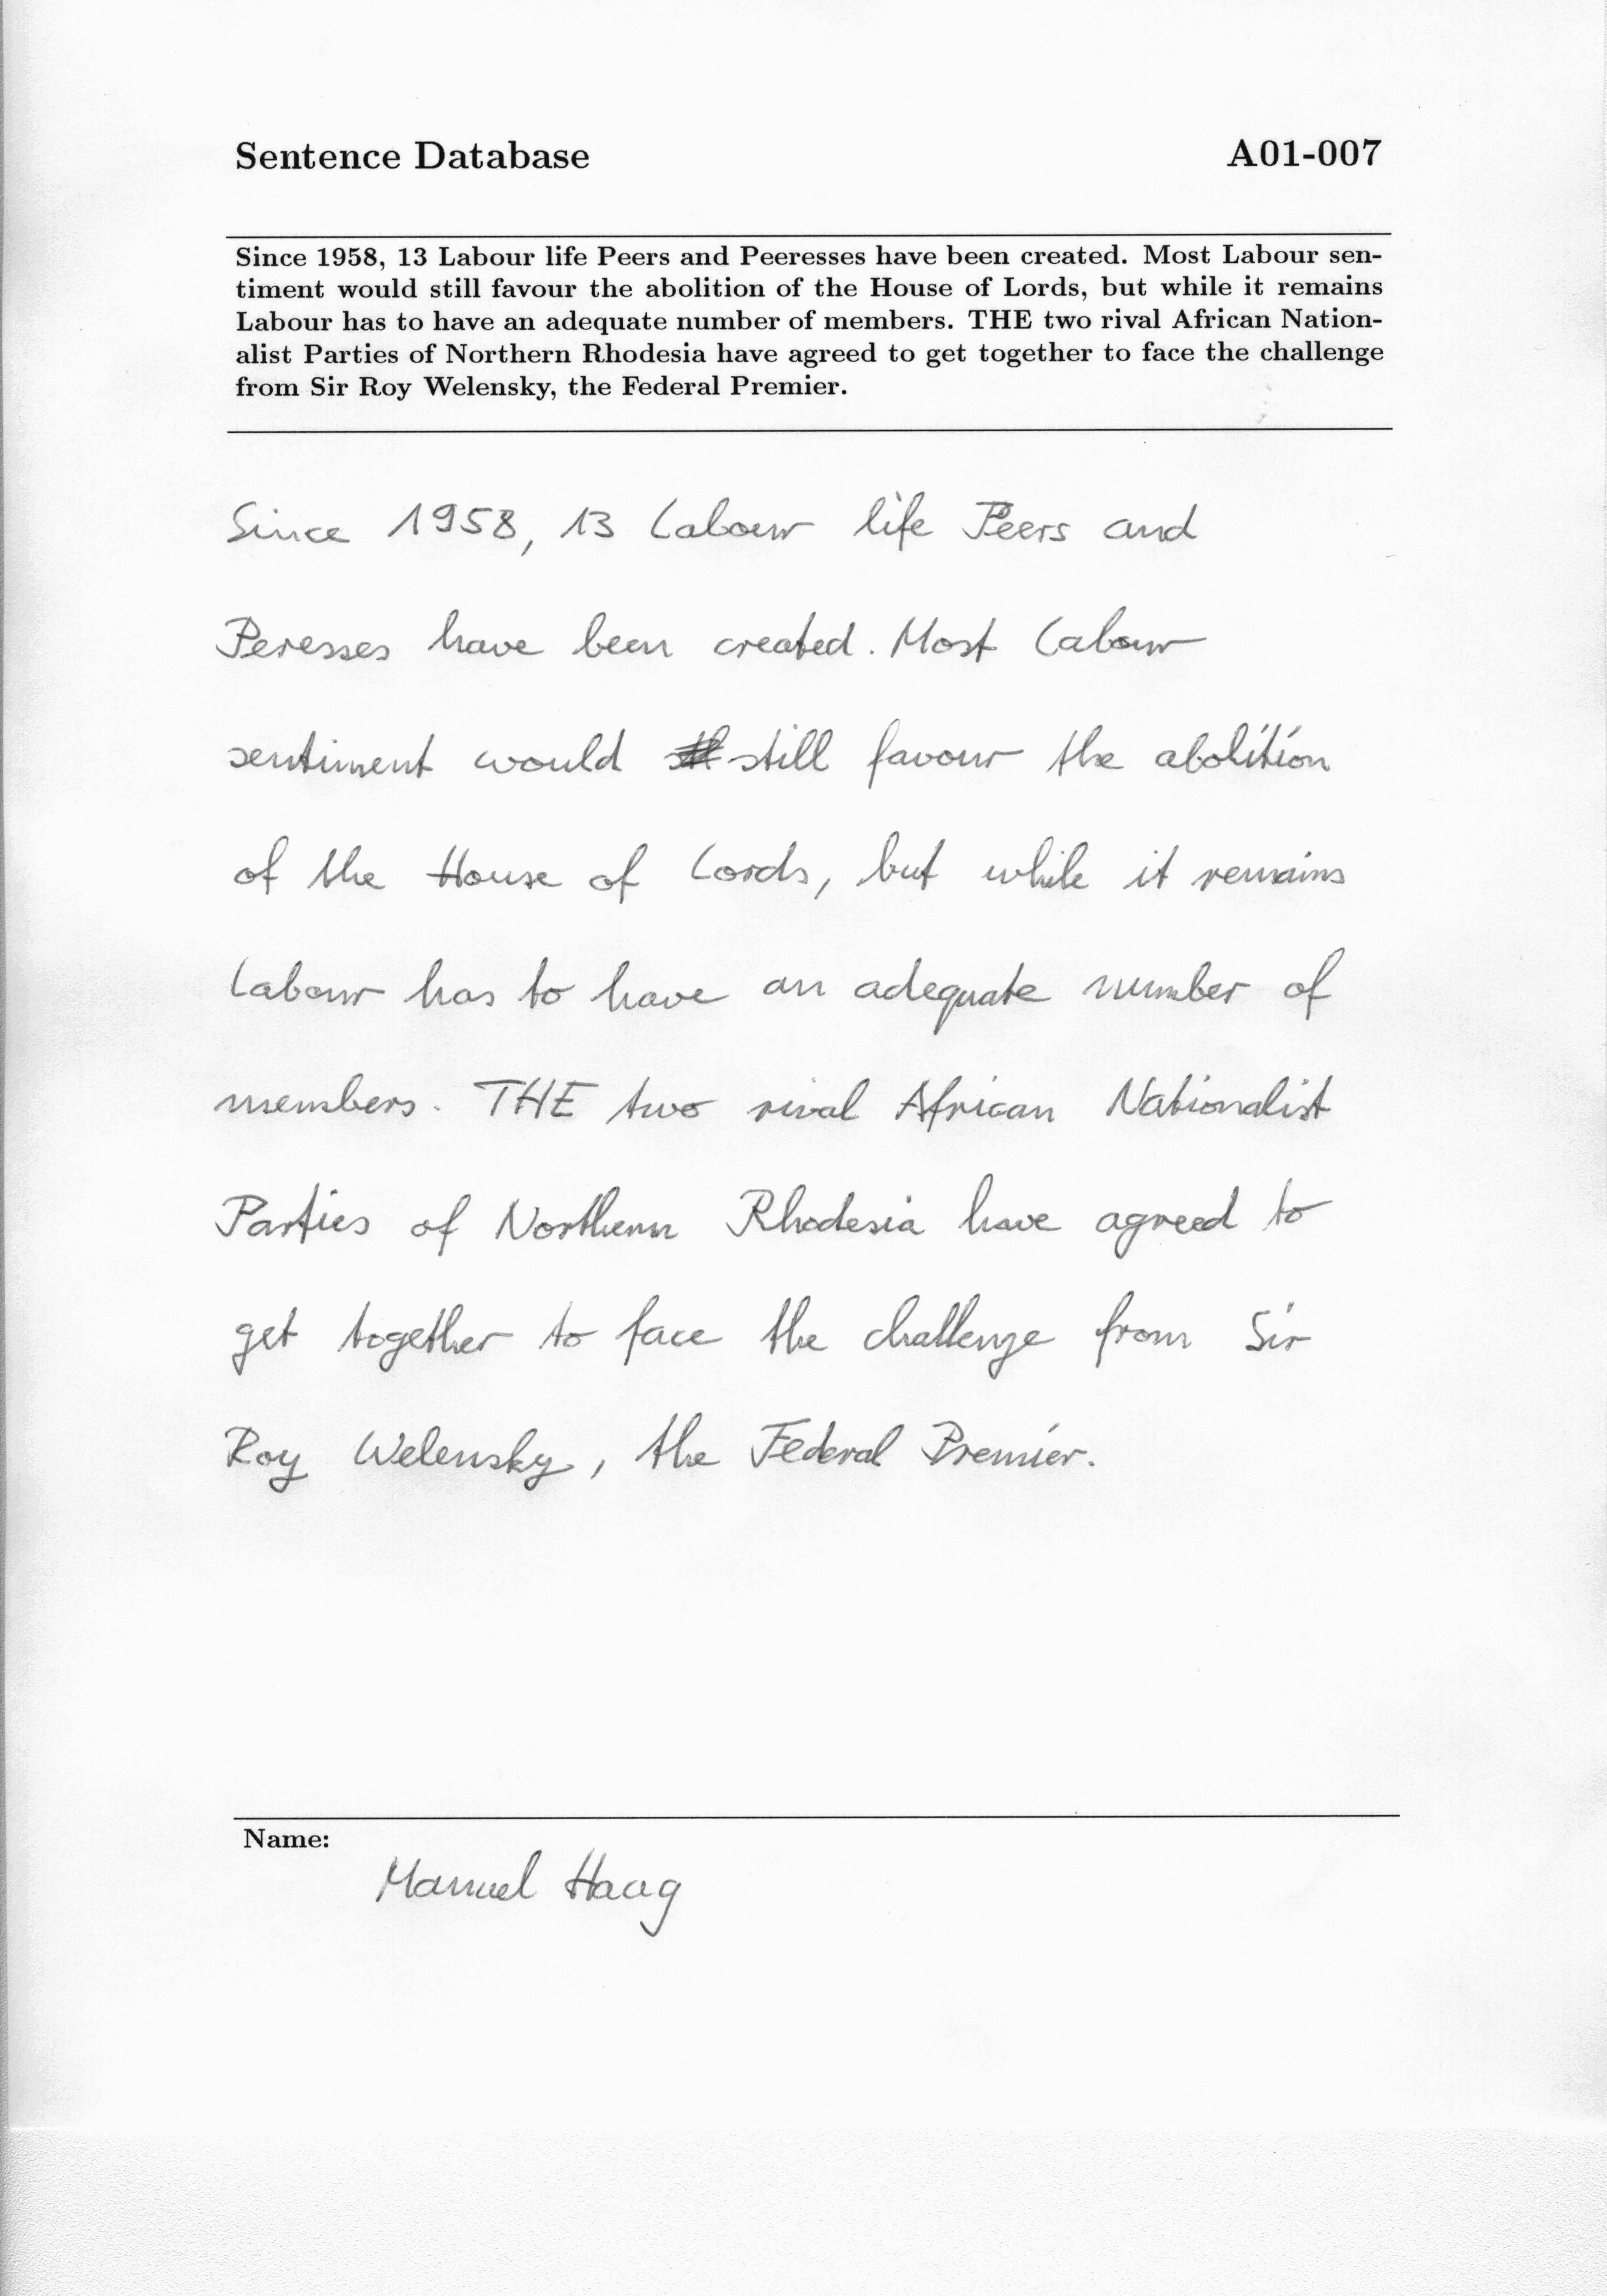 Sentence Database A01-007
Since 1958, 13 Labour life Peers and Peeresses have been created. Most Labour sen-
timent would still favour the abolition of the House of Lords, but while it remains
Labour has to have an adequate number of members. THE two rival African Nation-
alist Parties of Northern Rhodesia have agreed to get together to face the challenge
from Sir Roy Welensky, the Federal Premier.
Since 1958, 13 Labour life Peers and
Peresses have been created. Most Labour
sentiment would still favour the abolition
of the House of Lords, but while it remains
Labour has to have an adequate number of
members. THE two rival African Nationalist
Parties of Northern Rhodesia have agreed to
get together to face the challenge from Sir
Roy Welensky, the Federal Premier.
Name:
Manuel Haag